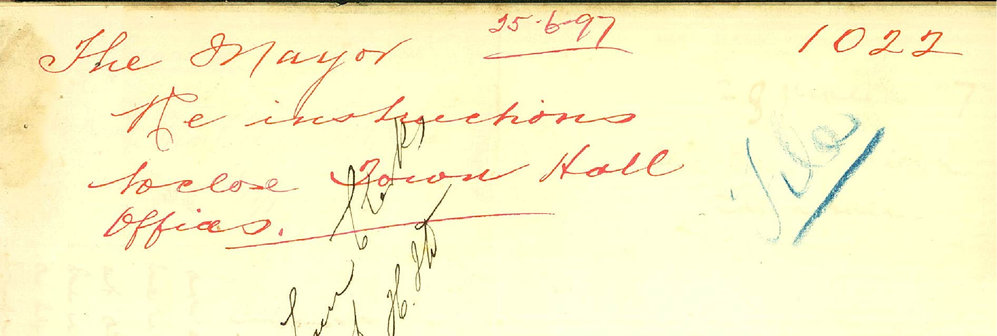 25-6-97
1022
The Mayor
Re instructions
to close Town Hall
Offices.
File
Town Clerk